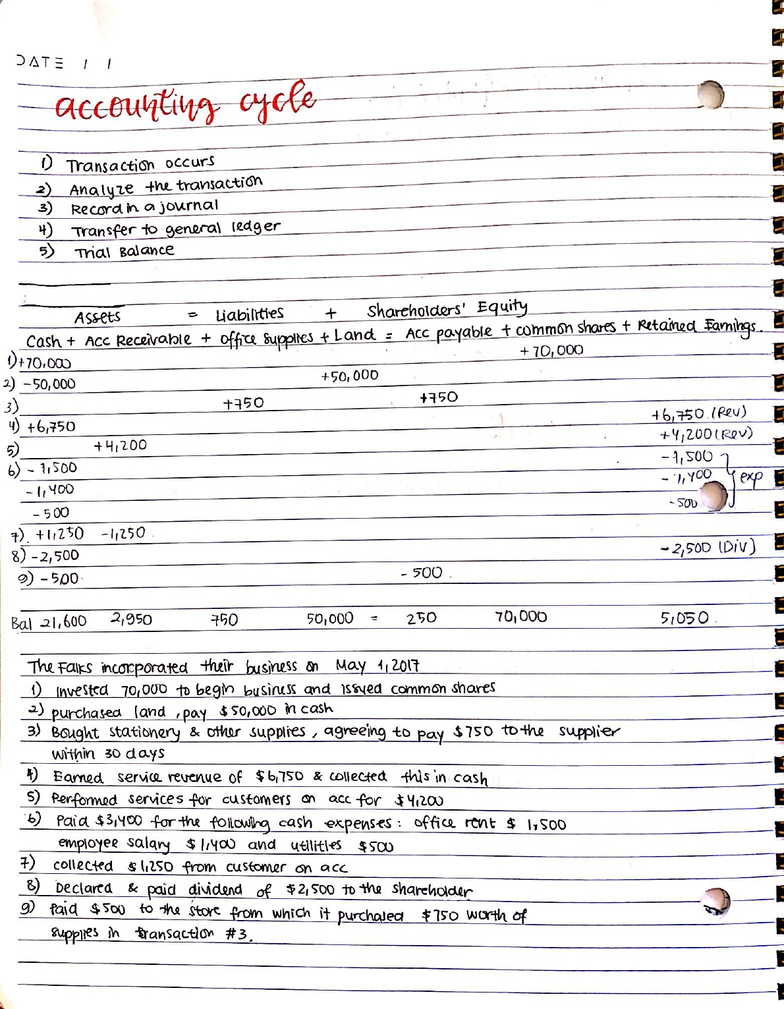 DATE / /
accounting cycle
1) Transaction occurs
2) Analyze the transaction
3) Record in a journal
4) Transfer to general ledger
5) Trial Balance
Assets = Liabilities + Shareholders' Equity
Cash + Acc Receivable + office supplies + Land = Acc payable + common shares + Retained Earnings.
1) +70,000 +70,000
2) -50,000 +50,000
3) +750 +750
4) +6,750 +6,750 (Rev)
5) +4,200 +4,200 (Rev)
6) -1,500 -1,500
-1,400 -1,400 exp
-500 -500
7). +1,250 -1,250
8) -2,500 -2,500 (Div)
9) -500 -500
Bal 21,600 2,950 750 50,000 = 250 70,000 5,050
The Falks incorporated their business on May 1, 2017
1) Invested 70,000 to begin business and issued common shares
2) purchased land, pay $50,000 in cash
3) Bought stationery & other supplies, agreeing to pay $750 to the supplier
within 30 days
4) Earned service revenue of $6,750 & collected this in cash
5) Performed services for customers on acc for $4,200
6) Paid $3,400 for the following cash expenses: office rent $1,500
employee salary $1,400 and utilities $500
7) collected $1,250 from customer on acc
8) Declared & paid dividend of $2,500 to the shareholder
9) Paid $500 to the store from which it purchased $750 worth of
supplies in transaction #3.